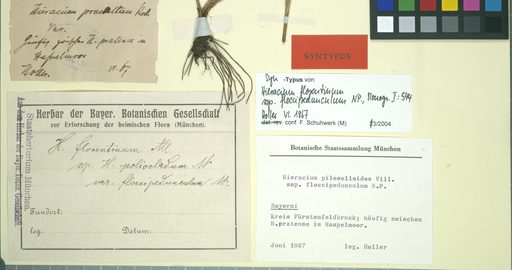 Hieracium praealtum Koch
Var.
Häufig zwisch. H. pratense im
Haspelmoor
Holler VI. 67
SYNTYPUS
Syn -Typus von:
Hieracium florentinum
ssp. floccipedunculum NP., Monogr. I: 544
Holler VI. 1867
det. rev. conf. F. Schuhwerk (M) 3/2004
Herbar der Bayer. Botanischen Gesellschaft
zur Erforschung der heimischen Flora (München).
H. florentinum All
ssp. H. poliocladum N.
var. floccipedunculum N.
Fundort:
leg. Datum:
Staatsherbarium München.
Aus dem Herbar der Bayer. Botan. Gesellschaft
Botanische Staatssammlung München
Hieracium piloselloides Vill.
ssp. floccipedunculum N.P.
Bayern:
Kreis Fürstenfeldbruck; häufig zwischen
H.pratense im Haspelmoor.
Juni 1867 leg. Holler